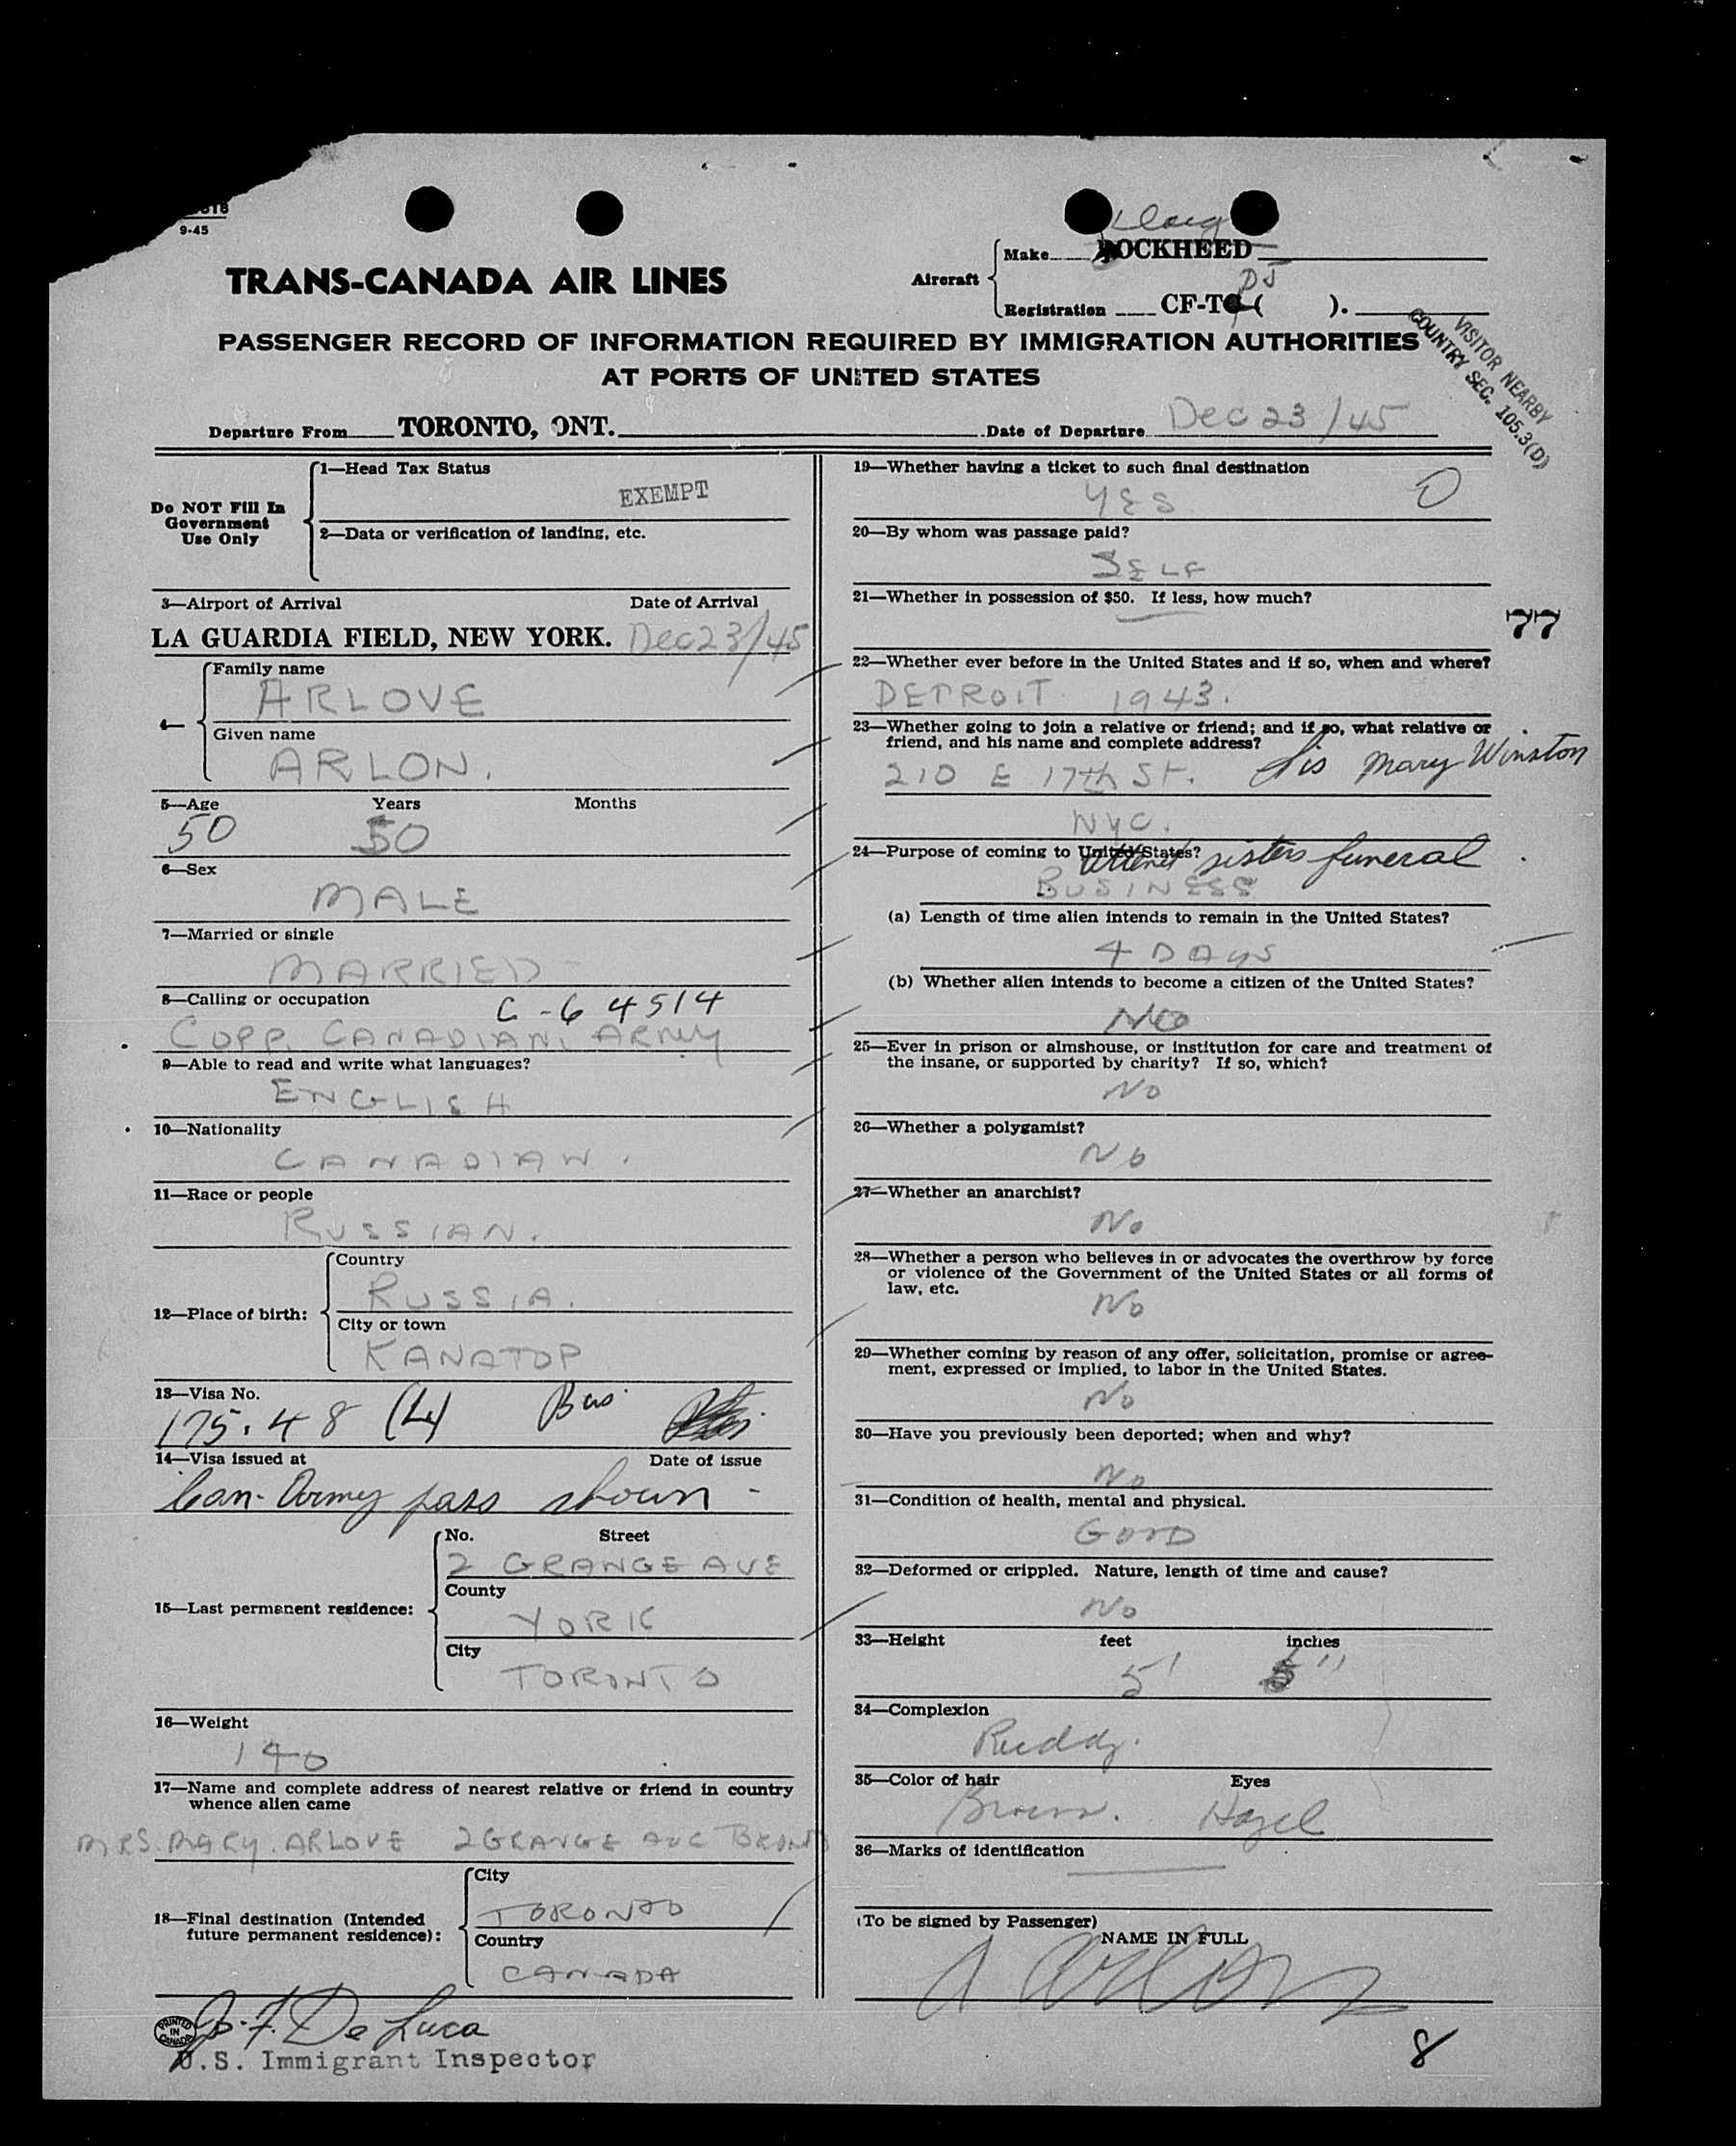 9-45
TRANS-CANADA AIR LINES
Aircraft
Make LOCKHEED
Doug
Registration CF-T ( ).
DJ
PASSENGER RECORD OF INFORMATION REQUIRED BY IMMIGRATION AUTHORITIES
AT PORTS OF UNITED STATES
VISITOR NEARBY
COUNTRY SEC. 105.3(D)
Departure From TORONTO, ONT. Date of Departure Dec 23/45
Do NOT Fill In
Government
Use Only
1—Head Tax Status
EXEMPT
2—Data or verification of landing, etc.
3—Airport of Arrival Date of Arrival
LA GUARDIA FIELD, NEW YORK. Dec 23/45
4—
Family name
ARLOVE
Given name
ARLON.
5—Age Years Months
50 50
6—Sex
MALE
7—Married or single
MARRIED
8—Calling or occupation C-64514
CORP. CANADIAN ARMY
9—Able to read and write what languages?
ENGLISH
10—Nationality
CANADIAN.
11—Race or people
RUSSIAN.
12—Place of birth:
Country
RUSSIA.
City or town
KANATOP
13—Visa No.
175.48 (L) Bus
14—Visa issued at Date of issue
Can-Army pass shown -
15—Last permanent residence:
No. Street
2 GRANGE AVE
County
YORK
City
TORONTO
16—Weight
140
17—Name and complete address of nearest relative or friend in country
whence alien came
MRS. MARY. ARLOVE 2 GRANGE AVE TORONTO
18—Final destination (Intended
future permanent residence):
City
TORONTO
Country
CANADA
J. F. De Luca
U.S. Immigrant Inspector
PRINTED
IN
CANADA
19—Whether having a ticket to such final destination
YES
20—By whom was passage paid?
SELF
21—Whether in possession of $50. If less, how much?
77
22—Whether ever before in the United States and if so, when and where?
DETROIT 1943.
23—Whether going to join a relative or friend; and if so, what relative or
friend, and his name and complete address?
210 E 17th St. Sis Mary Winston
NYC.
24—Purpose of coming to United States?
attend sisters funeral
BUSINESS
(a) Length of time alien intends to remain in the United States?
4 DAYS
(b) Whether alien intends to become a citizen of the United States?
NO
25—Ever in prison or almshouse, or institution for care and treatment of
the insane, or supported by charity? If so, which?
No
26—Whether a polygamist?
No
27—Whether an anarchist?
No
28—Whether a person who believes in or advocates the overthrow by force
or violence of the Government of the United States or all forms of
law, etc.
No
29—Whether coming by reason of any offer, solicitation, promise or agree-
ment, expressed or implied, to labor in the United States.
No
30—Have you previously been deported; when and why?
No
31—Condition of health, mental and physical.
GOOD
32—Deformed or crippled. Nature, length of time and cause?
No
33—Height feet inches
5' 5"
34—Complexion
Ruddy.
35—Color of hair Eyes
Brown. Hazel
36—Marks of identification
(To be signed by Passenger)
NAME IN FULL
A Arlon
8